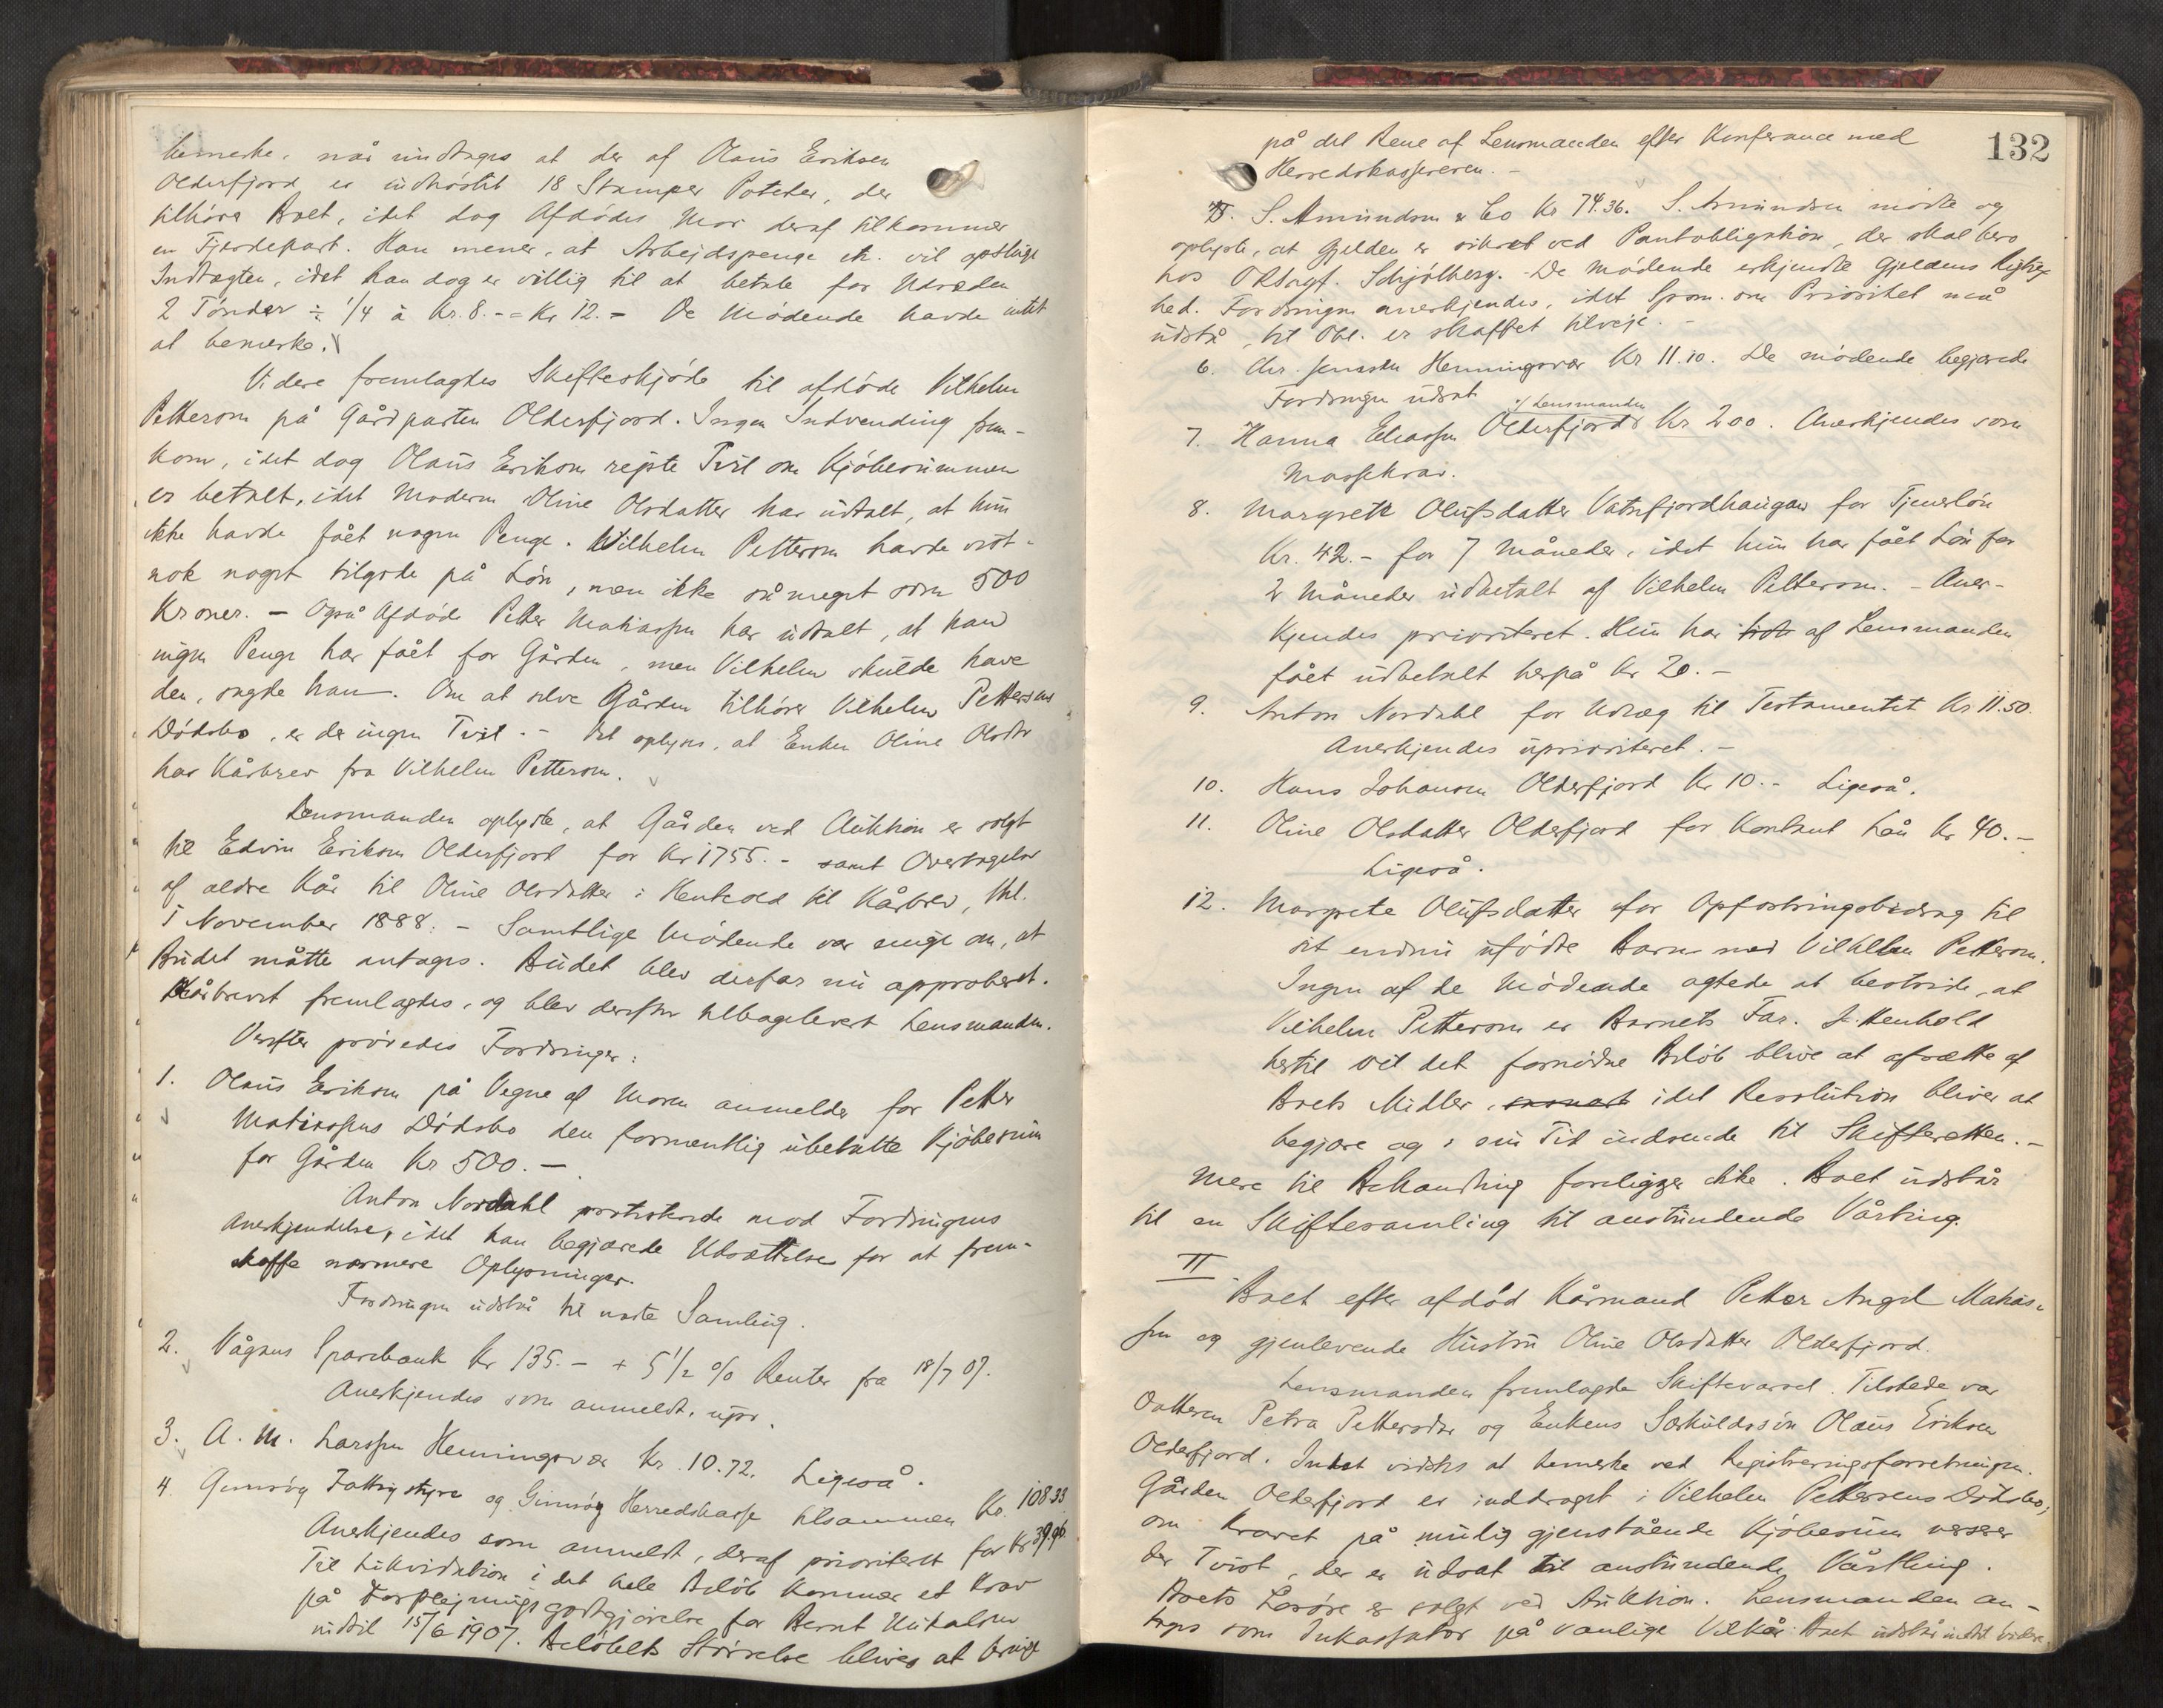 bemerke, når undtages at der af Olaus Eriksen
Olderfjord er indhøstet 18 Stamper Poteter, der
tilhører Boet, idet dog Afdødes Mor deraf tilkommer
en Fjerdepart. Han mener, at Arbejdspenge etc. vil opsluge
Indtægten, idet han dog er villig til at betale for
2 Tønder ÷ 1/4 à Kr. 8.- = Kr 12.- De Mødende havde intet
at bemerke.
Videre fremlagdes Skifteskjøde til afdøde Vilhelm
Petterson på Gårdparten Olderfjord. Ingen Indvending frem-
kom, idet dog Olaus Erikson rejste Tvil om Kjøbesummen
er betalt, idet Moderen Oline Olsdatter har udtalt, at hun
ikke havde fået nogen Penge. Wilhelm Petterson havde vist-
nok noget tilgode på Løn, men ikke så meget som 500
Kroner. - Også Afdøde Petter Matiassen har udtalt, at han
ingen Penge har fået for Gården, men Vilhelm skulde have
den, sagde han. Om at selve Gården tilhører Vilhelm Pettersens
Dødsbo, er der ingen Tvil. - Det oplyses, at Enken Oline Olsdtr
har Kårbrev fra Vilhelm Petterson.
Lensmanden oplyste, at Gården ved Auktion er solgt
til Edvin Erikson Olderfjord for Kr 1755.- samt Overtagelse
af ældre Kår til Oline Olsdatter i Henhold til Kårbrev, thl.
1 November 1888. - Samtlige Mødende var enige om, at
Budet måtte antages. Budet blev derfor nu approberet.
Kårbrevet fremlagdes, og blev derefter tilbagelevert Lensmanden.
Derefter prøvedes Fordringer:
1. Olaus Erikson på Vegne af Moren anmelder for Petter
Matiassens Dødsbo den formentlig ubetalte Kjøbesum
for Gården Kr 500.-
Anton Nordahl protesterede mod Fordringens
Anerkjendelse, idet han begjærede Udsættelse for at frem-
skaffe nærmere Oplysninger.
Fordringen udstår til næste Samling.
2. Vågans Sparebank Kr 135.- + 5 1/2 % Renter fra 18/7 07.
Anerkjendes som anmeldt, upr.
3. A. M. Larssen Henningsvær Kr. 10.72. Ligeså.
4. Gimsøy Fattigstyre og Gimsøy Herredskasse tilsammen Kr. 108 33
Anerkjendes som anmeldt, deraf prioriteret for Kr 39.96
Til Likvidation i det hele Beløb kommer et Krav
på Forplejningsgodtgjørelse for Bernt
indtil 15/6 1907. Beløbets Størrelse blives at bringe
132
på det Rene af Lensmanden efter Konferance med
Herredskassereren. -
5. S. Amundsen & Co Kr 74.36. S. Amundsen mødte og
oplyste, at Gjelden er sikret ved Pantobligation, der skal bero
hos O.R.Sagf. Schjølberg. - De Mødende erkjendte Gjeldens Rigtig-
hed. Fordringen anerkjendes, idet Spm. om Prioritet må
udstå, til Obl. er skaffet tilveje. -
6. Chr. Jensen Henningsvær Kr 11.10. De mødende begjærede
Fordringen udsat
7. Hanna Eliassen Olderfjord v/ Lensmanden Kr 200. Anerkjendes som
Massekrav.
8. Margrete Olufsdatter Vatsfjordhaugan for Tjenerløn
Kr. 42.- for 7 Måneder, idet hun har fået Løn for
2 Måneder udbetalt af Vilhelm Petterson. - Aner-
kjendes prioriteret. Hun har af Lensmanden
fået udbetalt herpå Kr 20.-
9. Anton Nordahl for Udlæg til Testamentet Kr. 11.50.
Anerkjendes uprioriteret. -
10. Hans Johanson Olderfjord Kr 10.- Ligeså.
11. Oline Olsdatter Olderfjord for Kontant Lån Kr 40.-
Ligeså.
12. Margrete Olufsdatter for Opfostringsbidrag til
sit endnu ufødte Barn med Vilhelm Petterson.
Ingen af de Mødende agtede at bestride, at
Vilhelm Petterson er Barnets Far. I Henhold
hertil vil det fornødne Beløb blive at afsætte af
Boets Midler, idet Resolution bliver at
begjære og i sin Tid indsende til Skifteretten. -
Mere til Behandling foreligger ikke. Boet udstår
til en Skiftesamling til anstundende Vårting.
II
Boet efter afdød Kårmand Petter Angel Matias-
sen og gjenlevende Hustru Oline Olsdatter Olderfjord.
Lensmanden fremlagde Skiftevarsel. Tilstede var
Datteren Petra Pettersdtr og Enkens Særkuldssøn Olaus Eriksen
Olderfjord. Intet vidstes at bemerke ved Registreringsforretningen.
Gården Olderfjord er inddraget i Vilhelm Pettersens Dødsbo;
om Kravet på mulig gjenstående Kjøbesum verserer
der Tvist, der er udsat til anstundende Vårthing.
Boets Løsøre er solgt ved Auktion. Lensmanden an-
tages som Inkassator på vanlige Vilkår. Boet udstår indtil videre.